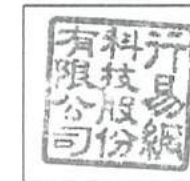 行易網
科技股份
有限公司